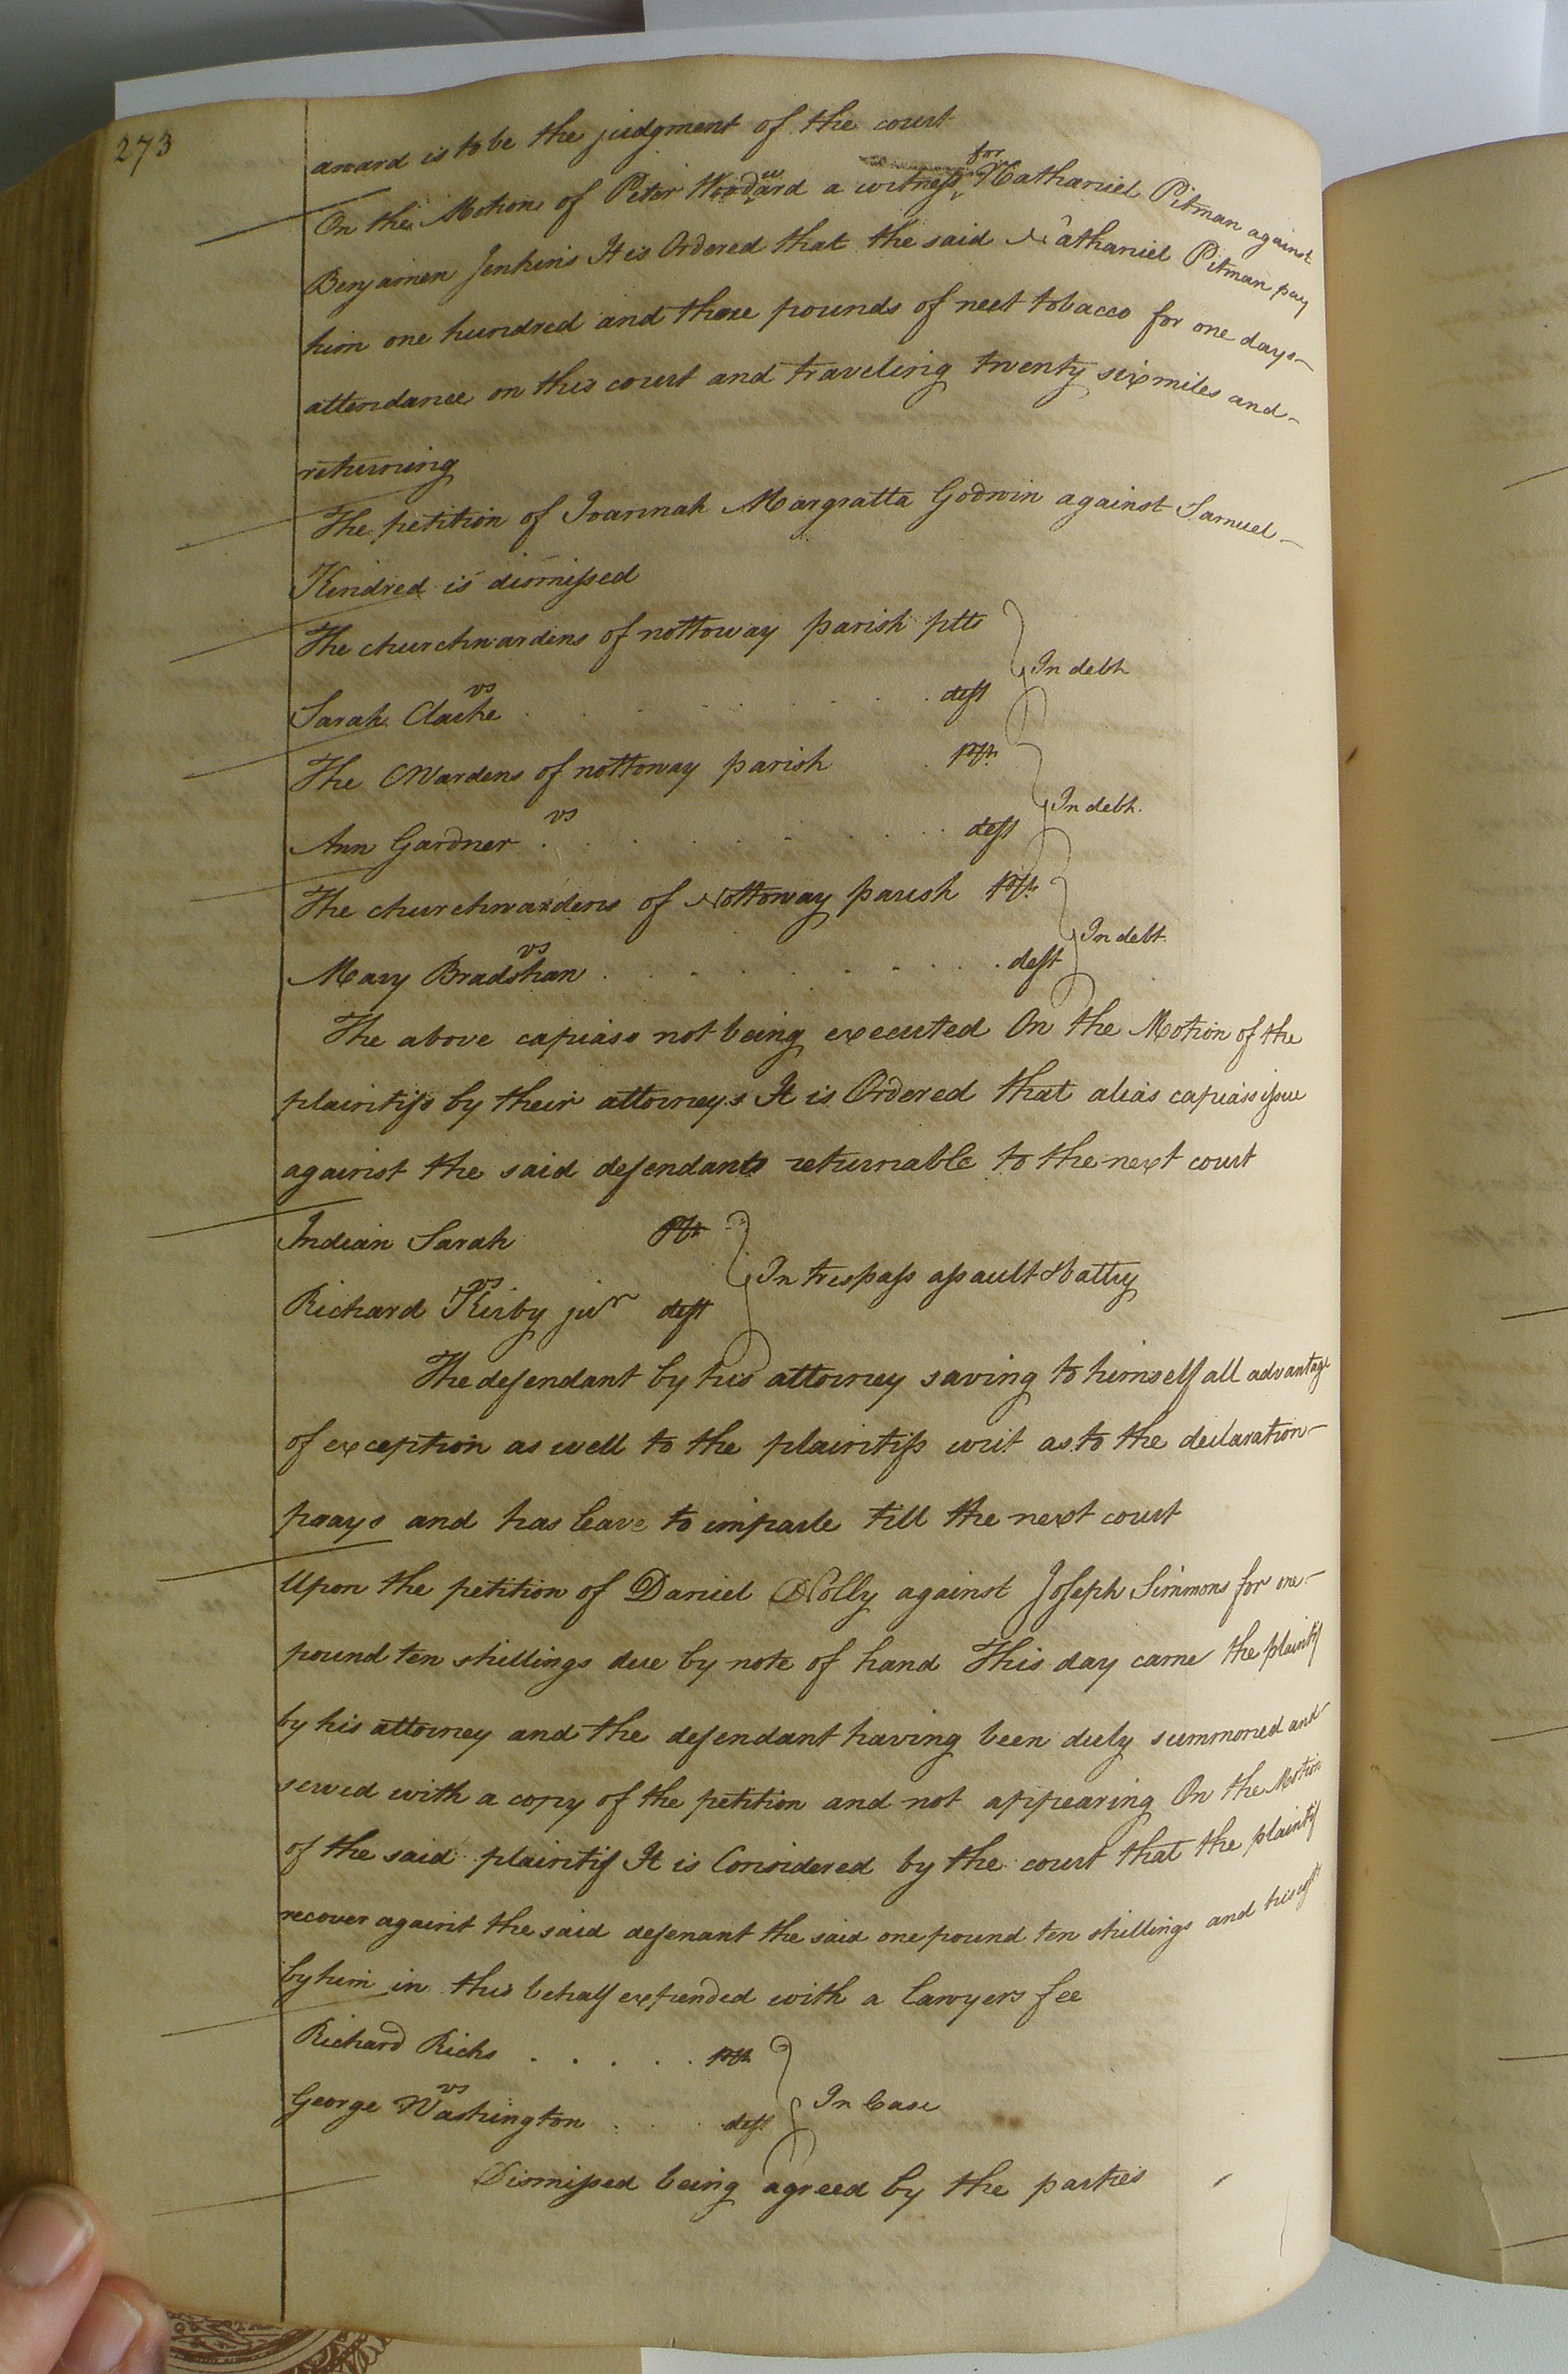 273
award is to be the judgment of the court
On the Motion of Peter Woodward a witness for Nathaniel Pitman against
Benjamen Jenkins It is Ordered that the said Nathaniel Pitman pay
him one hundred and three pounds of neet tobacco for one days
attendance on this court and traveling twenty six miles and
returning
The petition of Joannah Margratta Godwin against Samuel
Kindred is dismissed
The churchwardens of nottoway parish plts
vs
In debt
Sarah Clarke deft
The CWardens of nottoway parish plt
vs
In debt.
Ann Gardner deft
The churchwardens of Nottoway parish plt
vs
In debt.
Mary Bradshaw deft
The above capiass not being executed On the Motion of the
plaintifs by their attorneys It is Ordered that alias capiass issue
against the said defendants returnable to the next court
Indian Sarah plt
vs
In trespass assault & battry
Richard Kirby junr deft
The defendant by his attorney saving to himself all advantage
of exception as well to the plaintifs writ as to the declaration
prays and has leave to imparle till the next court
Upon the petition of Daniel Nolly against Joseph Simmons for one
pound ten shillings due by note of hand This day came the plaintif
by his attorney and the defendant having been duly summoned and
served with a copy of the petition and not appearing On the Motion
of the said plaintif It is Considered by the court that the plaintif
recover against the said defenant the said one pound ten shillings and his
by him in this behalf expended with a lawyers fee
Richard Ricks plt
vs
In Case
George Washington deft
Dismissed being agreed by the parties